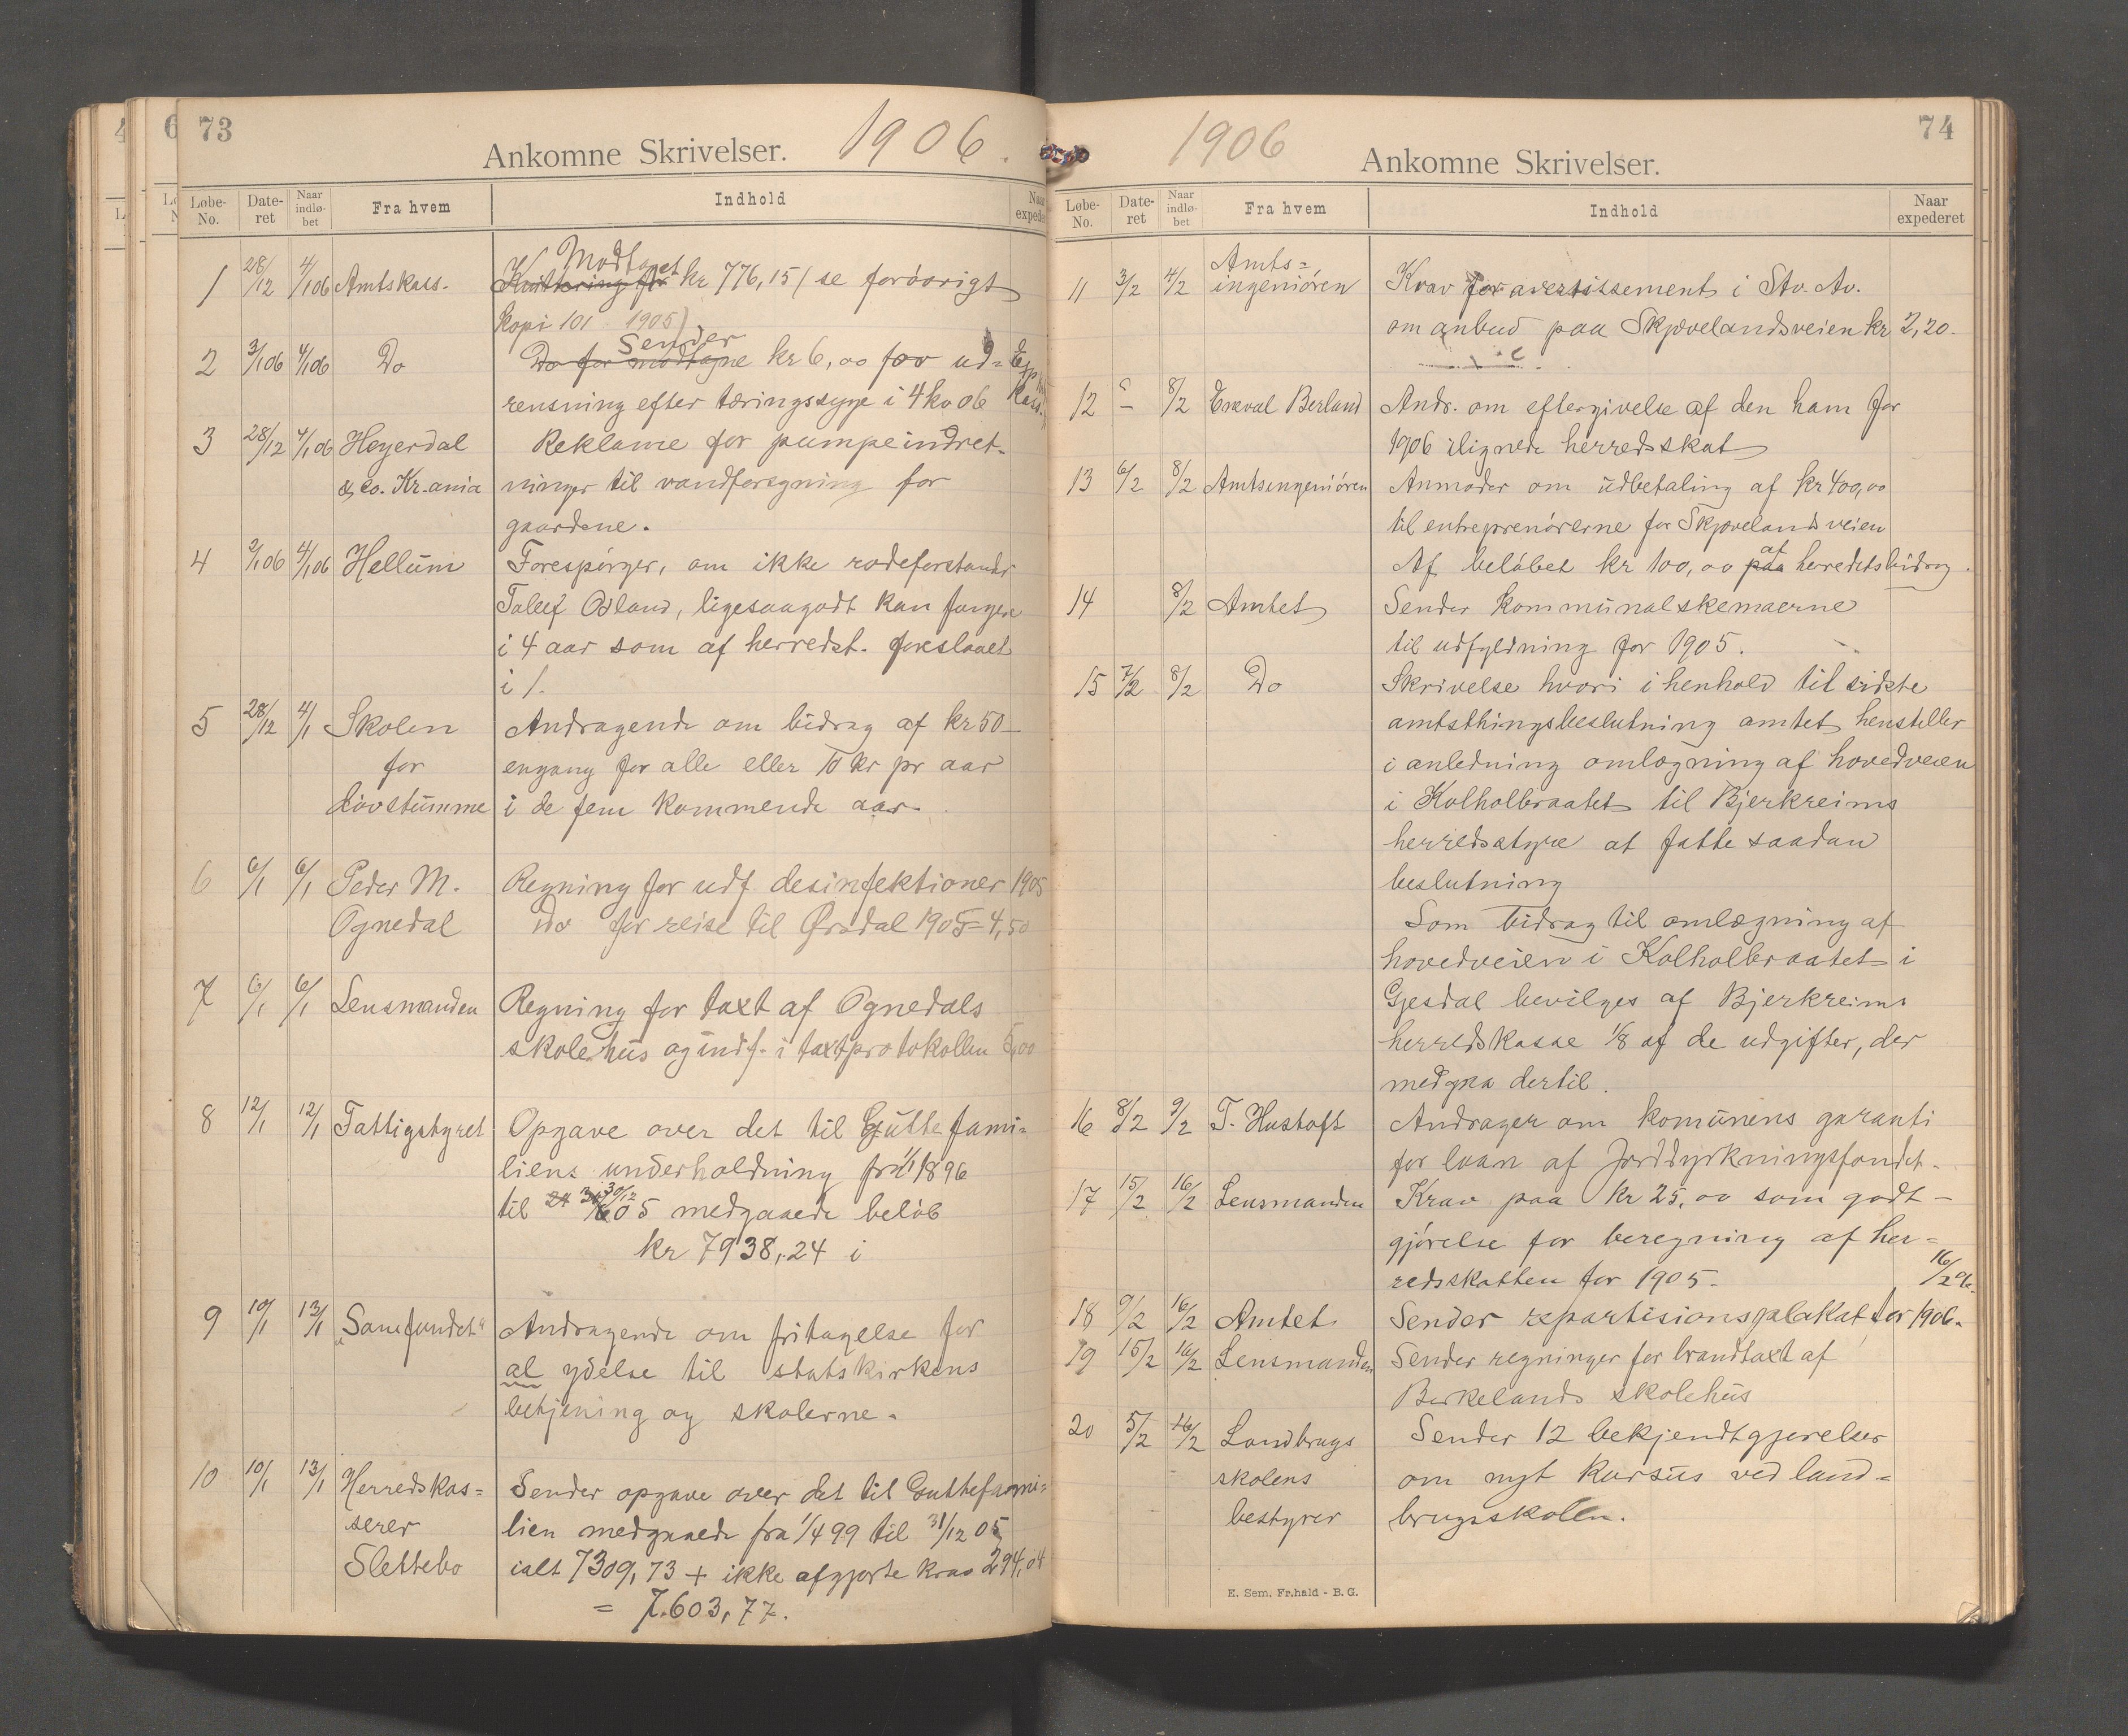 73
Ankomne Skrivelser. 1906.
Løbe-No. Date-ret Naar indlø-bet Fra hvem Indhold Naar expede
1 28/12 4/1 06 Amtskass. Modtaget kr 776,15 / se forövrigt
Kopi 101 1905)
2 3/1 06 4/1 06 Do Sender kr 6,00 for ud=
rensning efter tæringssyge i 4 kv 06
3 28/12 4/1 06 Heyerdal Reklame for pumpeindret-
& Co. Kr.ania ninger til vandforsyning for
gaardene.
4 2/1 06 4/1 06 Hellum Forespörger, om ikke rodeforstander
Tollef Odland, ligesaagodt kan fungere
i 4 aar som af herredst. foreslaaet
i 1.
5 28/12 4/1 Skolen Andragende om bidrag af kr 50 –
for engang for alle eller 10 kr pr aar
dövstumme i de fem kommende aar.
6 6/1 6/1 Peder M. Regning for udf. desinfektioner 1905
Ognedal Do for reise til Ørsdal 1905 = 4,50
7 6/1 6/1 Lensmanden Regning for taxt af Ognedals
skolehus og indf. i taxtprotokollen 6,00
8 12/1 12/1 Fattigstyret Opgave over det til Gutte fami=
liens underholdning fra 1/1 1896
til 30/12 05 medgaaede belöb
kr 7938,24 i
9 10/1 13/1 "Samfundet" Andragende om fritagelse for
al ydelse til statskirkens
betjening og skolerne.
10 10/1 13/1 Herredskas= Sender opgave over det til Guttefami=
serer lien medgaaede fra 1/4 99 til 31/12 05
Slettebo ialt 7309,73 + ikke afgjorte krav 294,04
= 7.603,77.
74
1906 Ankomne Skrivelser.
Løbe-No. Date-ret Naar indlø-bet Fra hvem Indhold Naar expederet
11 3/2 4/2 Amts= ingeniören Krav for avertissement i Stv. Av.
om anbud paa Skjævelandsveien kr 2,20.
12 – 8/2 Eneval Berland Andr. om eftergivelse af den ham for
1906 ilignede herredsskat
13 6/2 8/2 Amtsingeniören Anmoder om udbetaling af kr 400,00
til entreprenörerne for Skjævelandsveien
Af belöbet kr 100,00 af herredetsbidrag.
14 8/2 Amtet Sender kommunalskemaerne
til udfyldning for 1905.
15 7/2 8/2 Do Skrivelse hvori i henhold til sidste
amtsthingsbeslutning amtet henstiller
i anledning omlægning af hovedveien
i Kolholbraatet til Bjerkreims
herredsstyre at fatte saadan
beslutning
Som bidrag til omlægning af
hovedveien i Kolholbraatet i
Gjesdal bevilges af Bjerkreims
herredskasse 1/8 af de udgifter, der
medgaa dertil.
16 8/2 9/2 T. Hustoft Andrager om komunens garanti
for laan af Jorddyrkningsfondet.
17 15/2 16/2 Lensmanden Krav paa kr 25,00 som godt-
gjörelse for beregning af her=
redsskatten for 1905. 16/2 06
18 9/2 16/2 Amtet Sender repartisionsplakat for 1906.
19 15/2 16/2 Lensmanden Sender regninger for brandtaxt af
Birkelands skolehus
20 5/2 16/2 Landbrugs Sender 12 bekjendtgjørelser
skolens om nyt kursus ved land=
bestyrer brugsskolen.
E. Sem, Fr.hald - B. G.